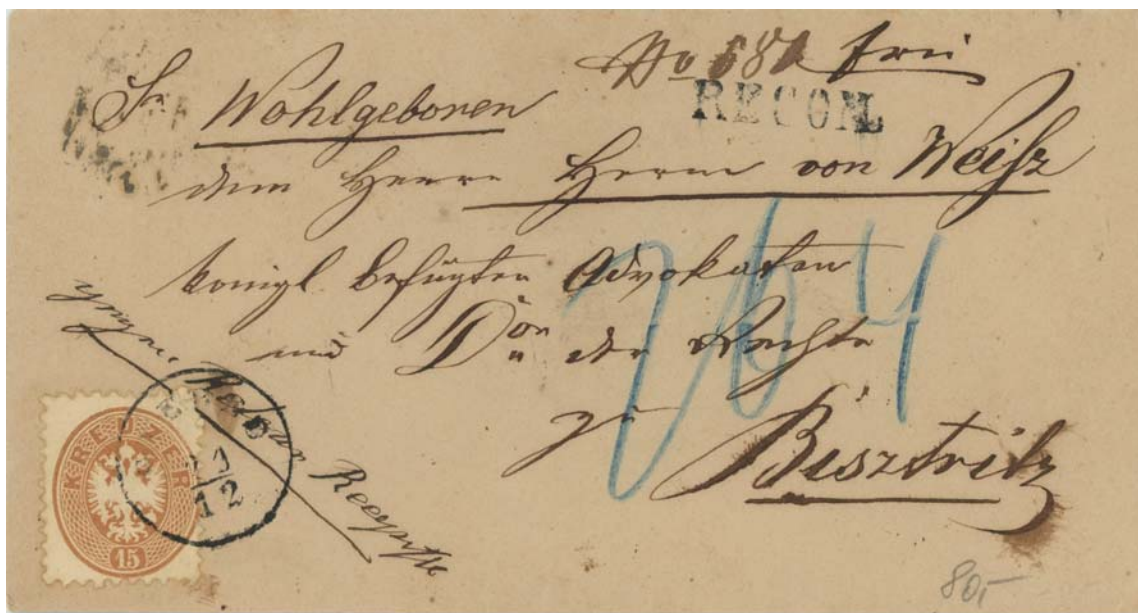 No 681 frei
RECOM.
Sr Wohlgeboren
dem Herrn Herrn von Weißz
königl befugten Advokaten
und Dor der Rechte
zu
Bisztritz
gegen Retour Recepisse
264
21
12
KREUZER
15
80,-